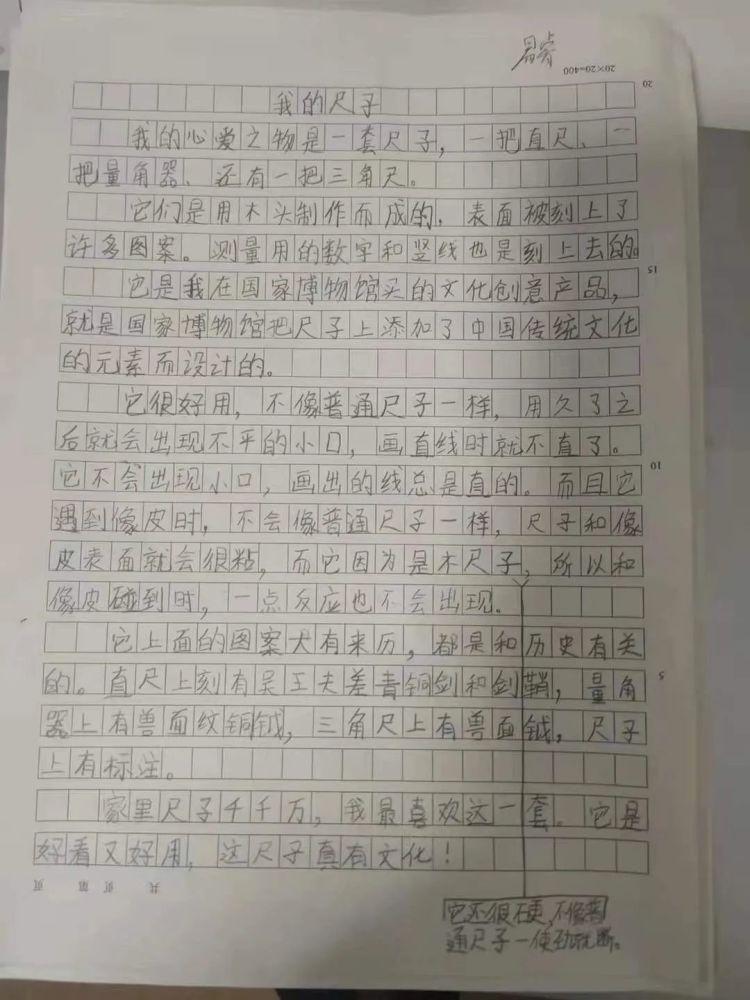 20×20=400
我的尺子
我的心爱之物是一套尺子，一把直尺、一
把量角器、还有一把三角尺。
它们是用木头制作而成的，表面被刻上了
许多图案。测量用的数字和竖线也是刻上去的。
它是我在国家博物馆买的文化创意产品，
就是国家博物馆把尺子上添加了中国传统文化
的元素而设计的。
它很好用，不像普通尺子一样，用久了之
后就会出现不平的小口，画直线时就不直了。
它不会出现小口，画出的线总是直的。而且它
遇到像皮时，不会像普通尺子一样，尺子和像
皮表面就会很粘，而它因为是木尺子，所以和
像皮碰到时，一点反应也不会出现.
它上面的图案大有来历，都是和历史有关
的。直尺上刻有吴王夫差青铜剑和剑鞘，量角
器上有兽面纹铜钺，三角尺上有兽面钺，尺子
上有标注。
家里尺子千千万，我最喜欢这一套。它是
好看又好用，这尺子真有文化！
共 页 第 页
它还很硬，不像普
通尺子一使劲就断。
20
15
10
5